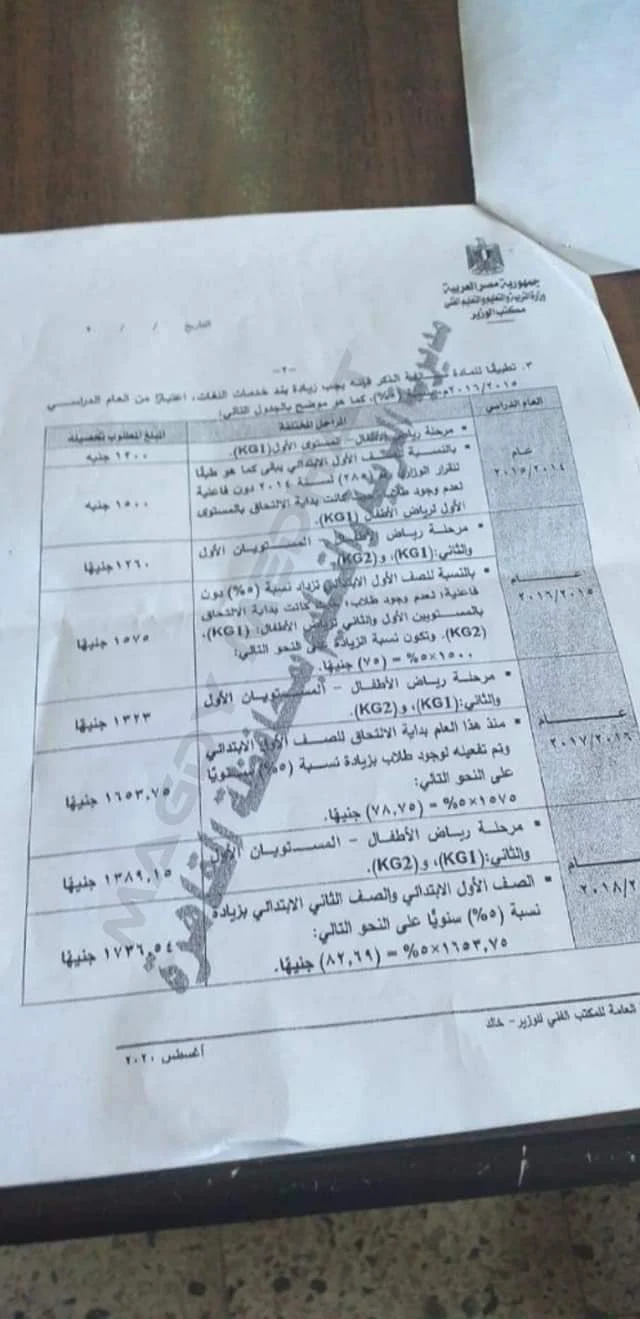 جمهورية مصر العربية
وزارة التربية والتعليم والتعليم الفني
مكتب الوزير
التاريخ / / ٢
-٢-
٣. تطبيقًا للمادة الذكر فإنه يجب زيادة بند خدمات اللغات، اعتبارًا من العام الدراسي
٢٠١٦/٢٠١٥م، كما هو موضح بالجدول التالي:
العام الدراسي المراحل المختلفة المبلغ المطلوب تحصيله
عام ٢٠١٥/٢٠١٤
• مرحلة رياض الأطفال - المستوى الأول (KG1).
١٢٠٠ جنيه
• بالنسبة للصف الأول الابتدائي يبقى كما هو طبقًا
للقرار الوزاري (٢٨٥) لسنة ٢٠١٤ دون فاعلية
لعدم وجود كانت بداية الالتحاق بالمستوى
الأول لرياض الأطفال (KG1).
١٥٠٠ جنيه
عام ٢٠١٦/٢٠١٥
• مرحلة رياض الأطفال - المستويان الأول
والثاني: (KG1)، و(KG2).
١٢٦٠ جنيهًا
• بالنسبة للصف الأول الابتدائي تزاد نسبة (٥%) دون
فاعلية؛ لعدم وجود طلاب، كانت بداية الالتحاق
بالمستويين الأول والثاني لرياض الأطفال: (KG1)،
(KG2). وتكون نسبة الزيادة على النحو التالي:
١٥٠٠×٥% = (٧٥) جنيهًا.
١٥٧٥ جنيهًا
عام ٢٠١٧/٢٠١٦
• مرحلة رياض الأطفال - المستويان الأول
والثاني: (KG1)، و(KG2).
١٣٢٣ جنيهًا
• منذ هذا العام بداية الالتحاق للصف الأول الابتدائي
وتم تفعيله لوجود طلاب بزيادة نسبة (٥%) سنويًا
على النحو التالي:
١٥٧٥×٥% = (٧٨,٧٥) جنيهًا.
١٦٥٣,٧٥ جنيهًا
عام ٢٠١٨/٢
• مرحلة رياض الأطفال - المستويان الأول
والثاني: (KG1)، و(KG2).
١٣٨٩,١٥ جنيهًا
• الصف الأول الابتدائي والصف الثاني الابتدائي بزيادة
نسبة (٥%) سنويًا على النحو التالي:
١٦٥٣,٧٥×٥% = (٨٢,٦٩) جنيهًا.
١٧٣٦,٥٤ جنيهًا
العامة للمكتب الفني للوزير - خالد
أغسطس ٢٠٢٠
مديرية التربية والتعليم بمحافظة القاهرة